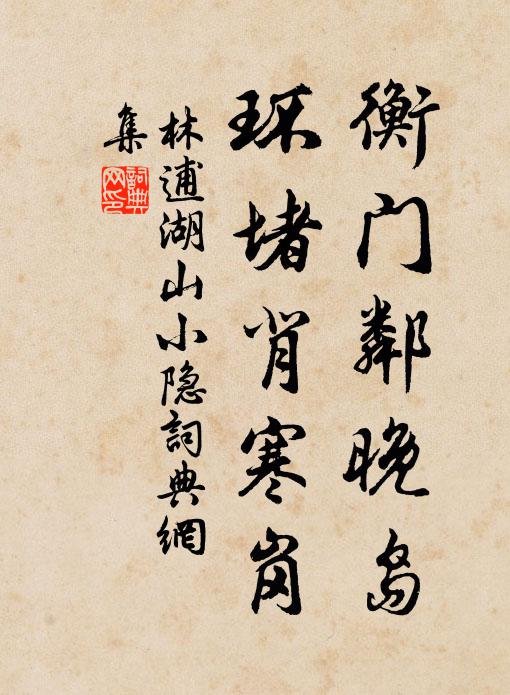 衡门鄰晚岛
环堵背寒岗
林逋湖山小隐詞典網
集
詞典
网印